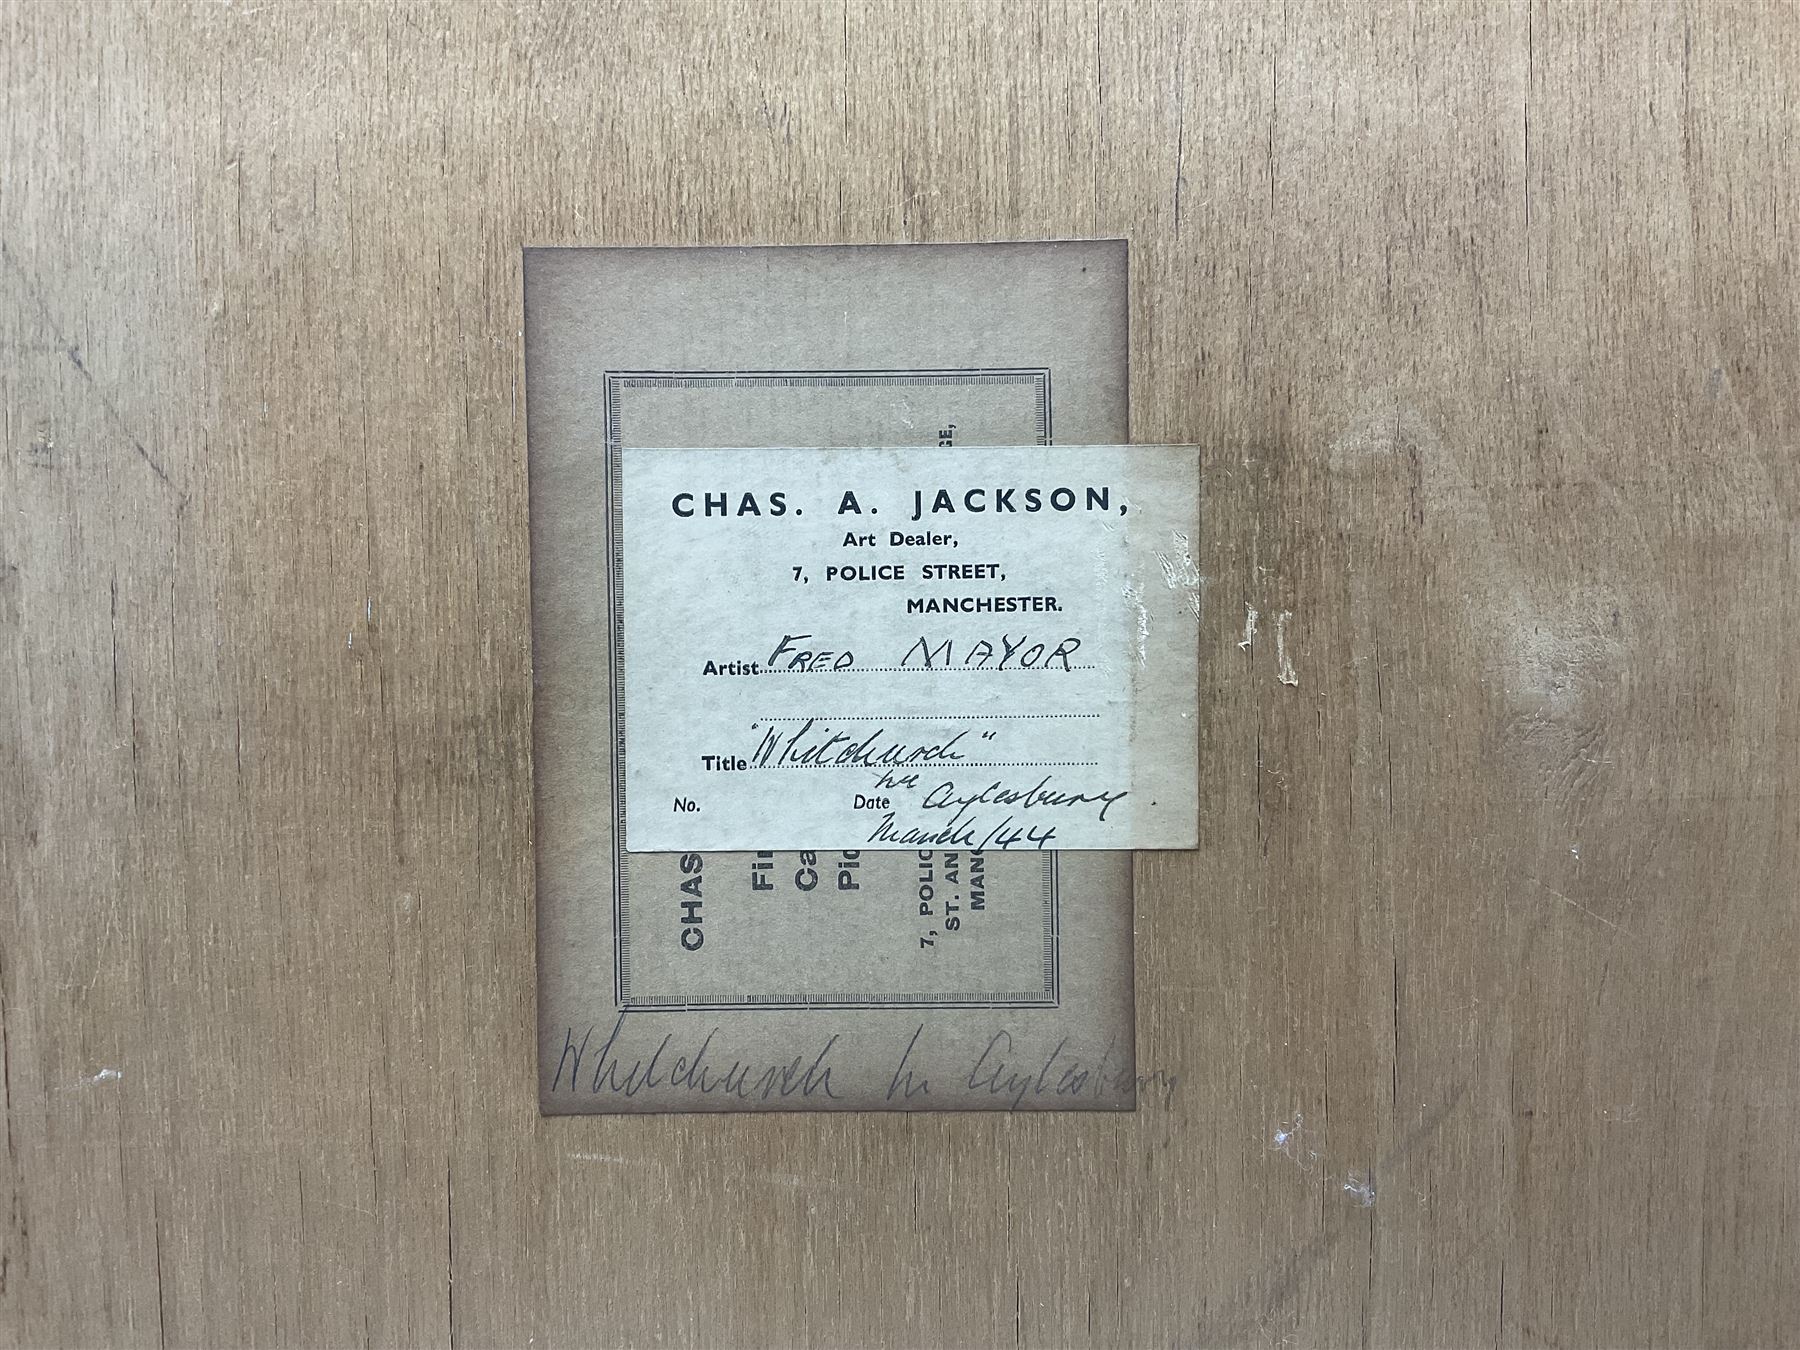 CHAS. A. JACKSON,
Art Dealer,
7, POLICE STREET,
MANCHESTER.
Artist FRED MAYOR
Title "Whitchurch"
nr
No. Date Aylesbury.
March/44
GE,
CHAS
Fi
Ca
Pic
7, POLIC
ST. AN
MAN
Whitchurch nr Aylesbury